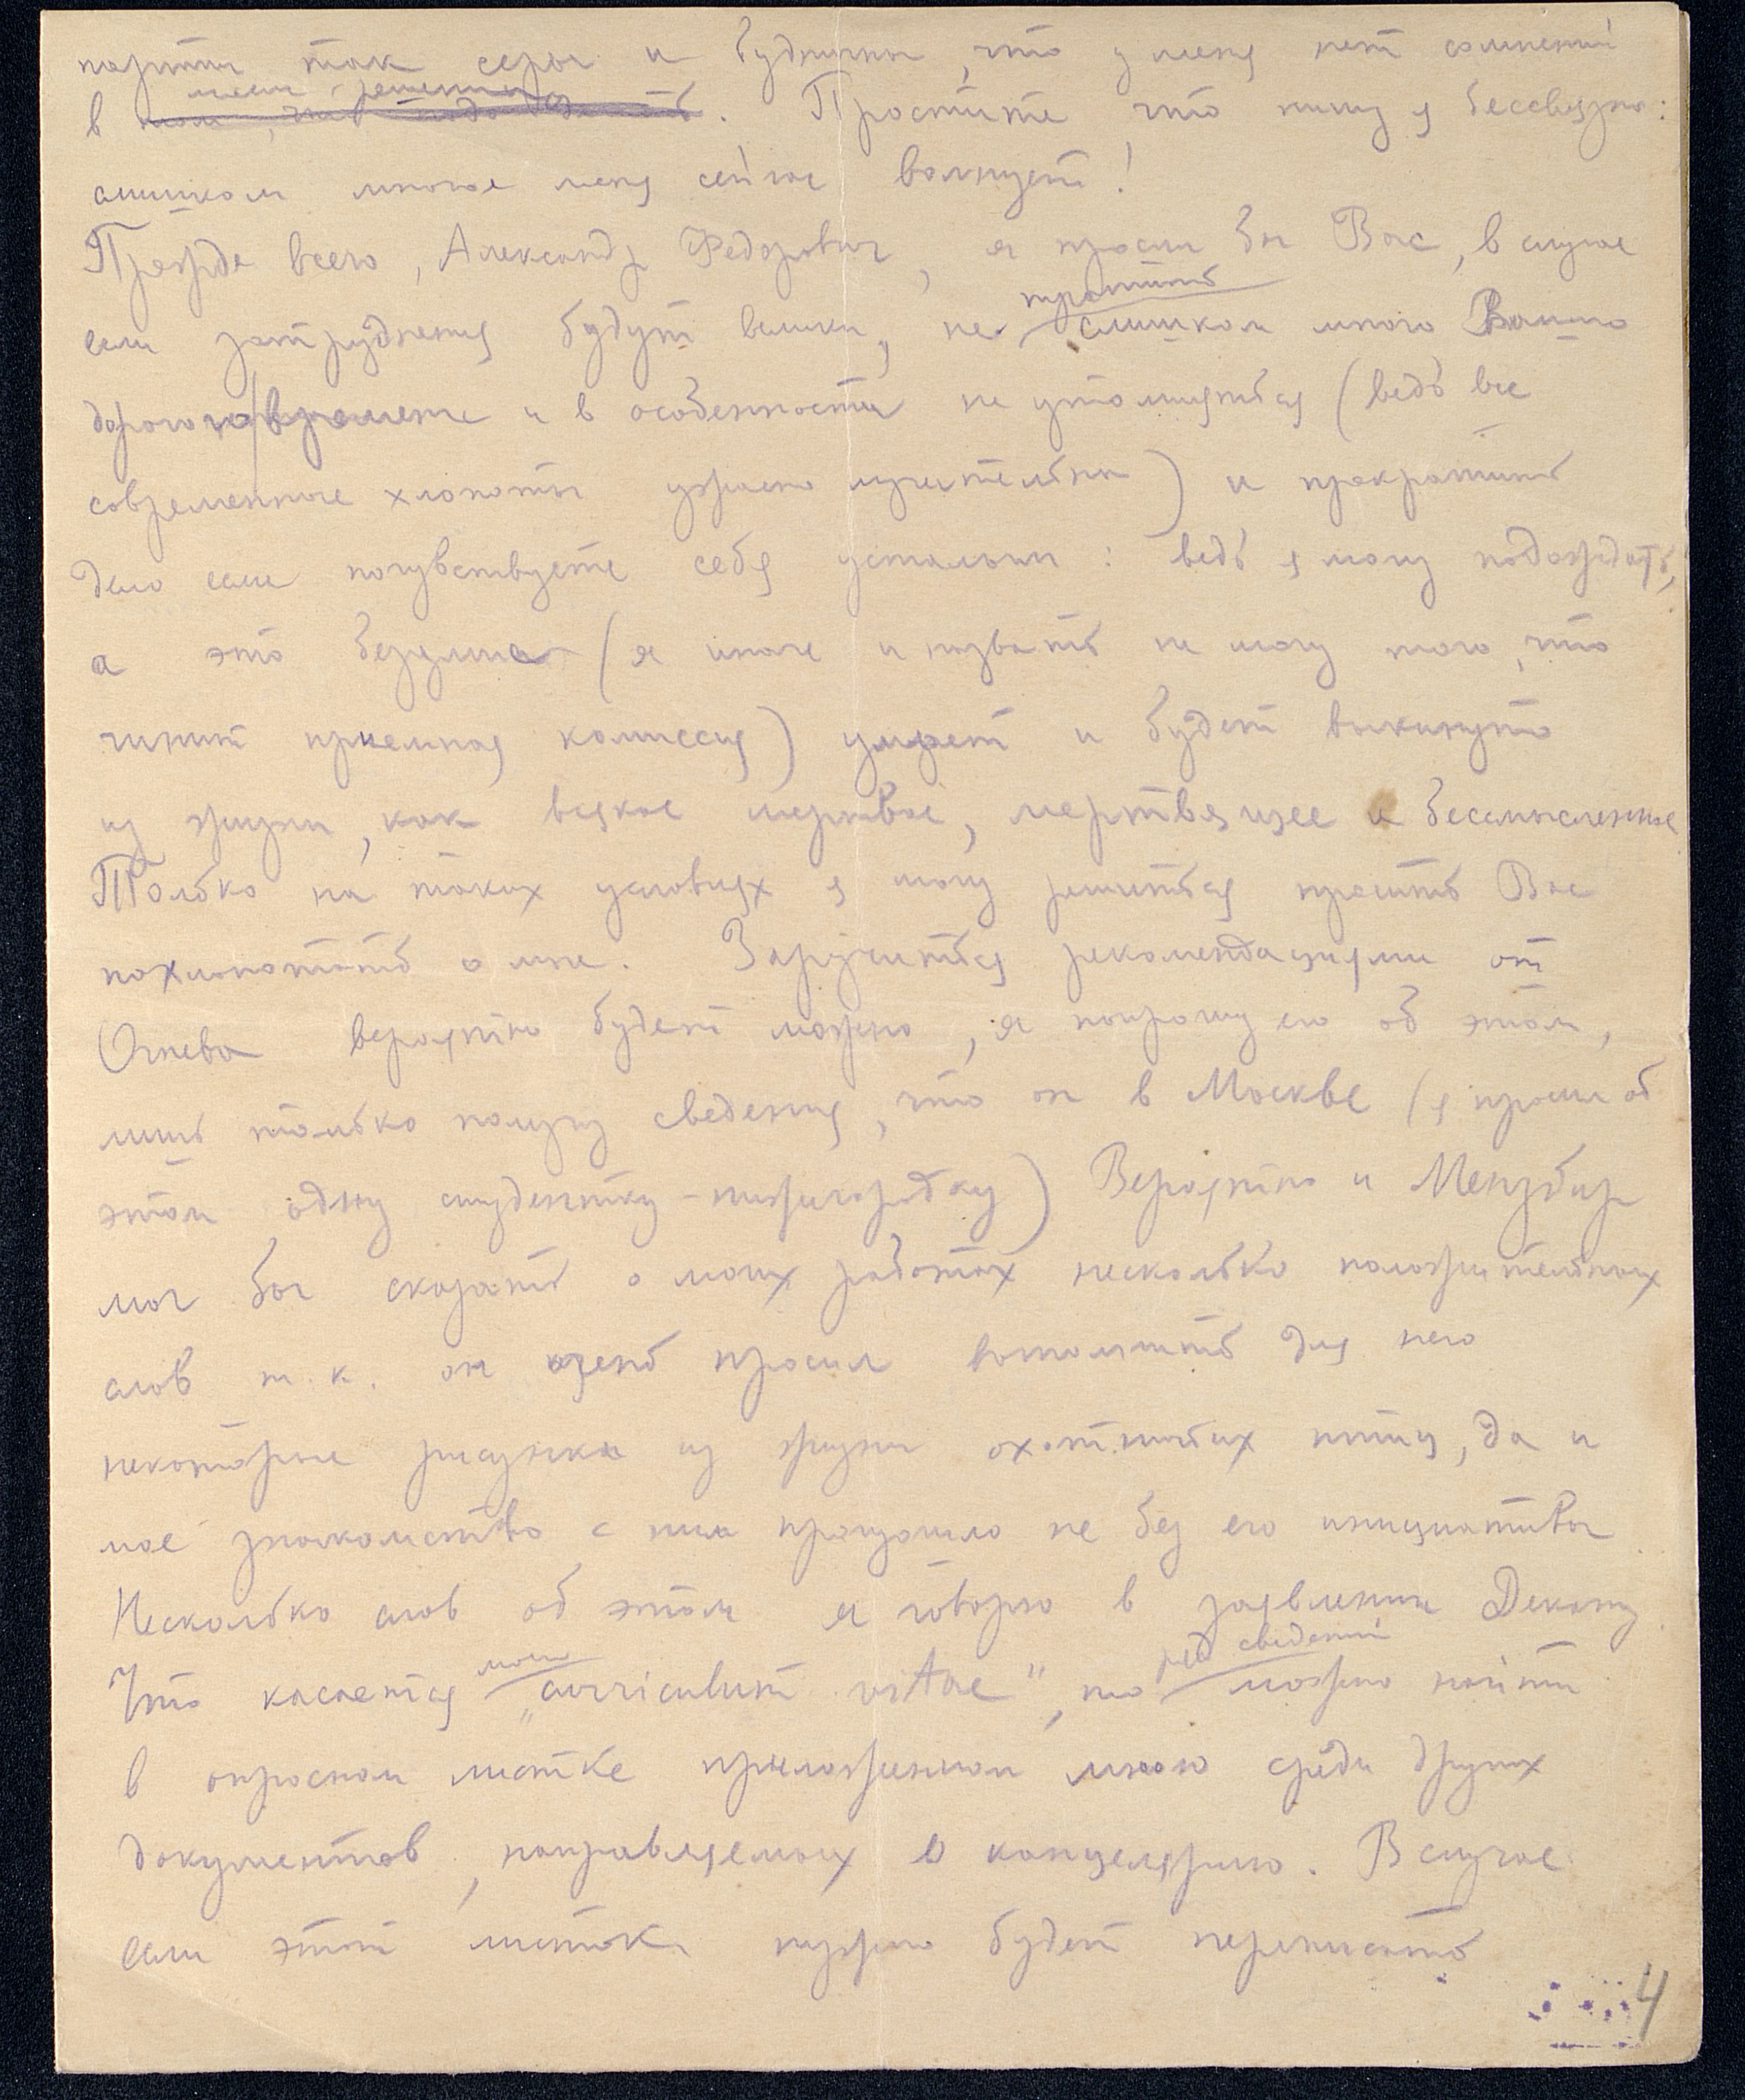 партии так серы и будничны, что у меня нет сомнений
в моем решении. Простите что пишу я бессвязно:
слишком многое меня сейчас волнует!
Прежде всего, Александр Федорович, я просил бы Вас, в случае
если затруднения будут велики, не тратить слишком много Вашего
дорогого времени и в особенности не утомляться (ведь все
современные хлопоты ужасно мучительны) и прекратить
дело если почувствуете себя усталым: ведь я могу подождать,
а это безумие (я иначе и назвать не могу того, что
чинит приемная комиссия) умрет и будет выкинуто
из жизни, как всякое мертвое, мертвящее и бессмысленное
Только на таких условиях я могу решиться просить Вас
похлопотать о мне. Заручиться рекомендациями от
Огнева вероятно будет можно, я попрошу его об этом,
лишь только получу сведения, что он в Москве (я просил об
этом одну студентку-нижегородку) Вероятно и Мензбир
мог бы сказать о моих работах несколько положительных
слов т.к. он очень просил выполнить для него
некоторые рисунки из жизни охотничьих птиц, да и
мое знакомство с ним произошло не без его инициативы
Несколько слов об этом я говорю в заявлении Декану
Что касается моего „curriculum vitae", то ряд сведений можно найти
в опросном листке приложенном мною среди других
документов, направляемых в канцелярию. В случае
если этот листок нужно будет переписать
4